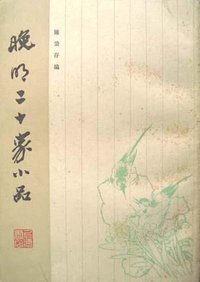 晚明二十家小品
施蟄存編